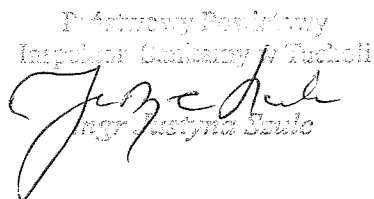 Państwowy Powiatowy
Inspektor Sanitarny w Tucholi
mgr Justyna Szulc